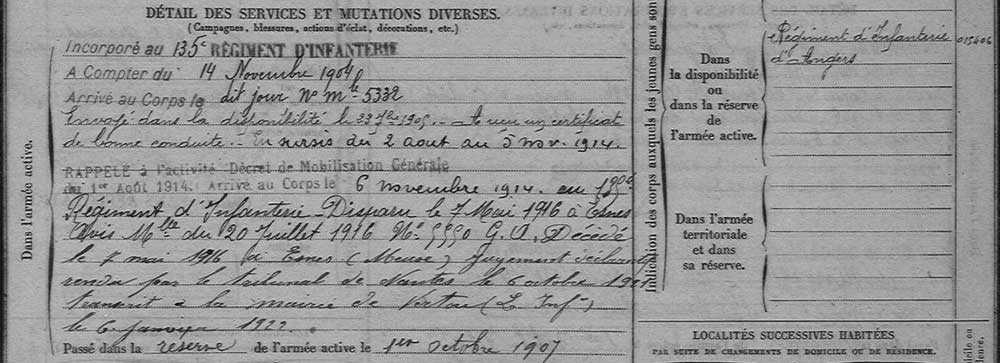 DÉTAIL DES SERVICES ET MUTATIONS DIVERSES.
(Campagnes, blessures, actions d'éclat, décorations, etc.)
Dans l'armée active.
Incorporé au 135e RÉGIMENT D'INFANTERIE
A Compter du 14 Novembre 1904
Arrivé au Corps le dit jour No mle 5332
Envoyé dans la disponibilité le 23 1905. - A reçu un certificat
de bonne conduite. - En sursis du 2 aout au 5 nov. 1914.
RAPPELÉ à l'activité Décret de Mobilisation Générale
du 1er Août 1914. Arrivé au Corps le 6 novembre 1914. au
Régiment d'Infanterie - Disparu le 7 Mai 1916 à Esnes
Avis Mlle du 20 Juillet 1916 No 5550 G. A. Décédé
le mai 1916 à Esnes (Meuse) Jugement déclaratif
rendu par le tribunal de Nantes le 6 octobre 1921
transcrit à la mairie de Vertou (L. Infre)
le 6 janvier 1922.
Passé dans la réserve de l'armée active le 1er octobre 1907
Indication des corps auxquels les jeunes gens son
Dans
la disponibilité
ou
dans la réserve
de
l'armée active.
Régiment d'Infanterie 015406
d'Angers
Dans l'armée
territoriale
et dans
sa réserve.
LOCALITÉS SUCCESSIVES HABITÉES
PAR SUITE DE CHANGEMENTS DE DOMICILE OU DE RÉSIDENCE.